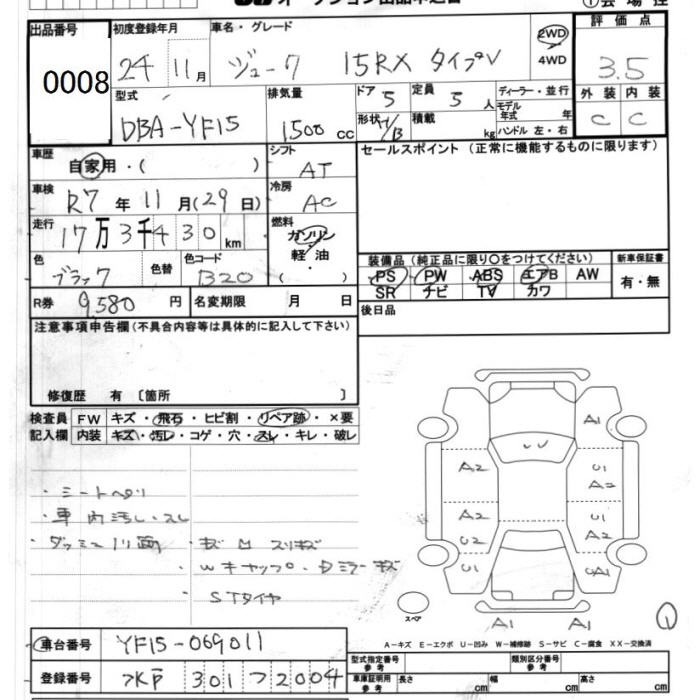 オークション出品申込書
①会場控
出品番号 0008
初度登録年月 24 11月
車名・グレード ジューク 15RX タイプV
2WD
4WD
評価点 3.5
外装 内装
C C
型式 DBA-YF15
排気量 1500cc
ドア 5
形状
定員 5人
積載 kg
ディーラー・並行
モデル年式 年
ハンドル 左・右
車歴 自家用・( )
シフト AT
セールスポイント(正常に機能するものに限ります)
車検 R7年11月(29日)
冷房 AC
走行 17万3千430km
燃料 ガソリン
軽油
( )
色 ブラック
色替
色コード B20
装備品(純正品に限り○をつけてください)
新車保証書
PS PW ABS エアB AW
SR ナビ TV カワ
有・無
R券 9,580円
名変期限 月 日
後日品
注意事項申告欄(不具合内容等は具体的に記入して下さい)
修復歴 有〔箇所 〕
検査員 FW キズ・飛石・ヒビ割・リペア跡・×要
記入欄 内装 キズ・汚レ・コゲ・穴・スレ・キレ・破レ
・シートヘタリ
・車内汚レ・スレ
・ダッシュノリ面
・キズ凹スリキズ
・Wキャップ・Dミラーキズ
・STタイヤ
A1
UU
A2 U1
A2
A2 U1
U2 A2
U1 UA1
スペア
A1 A1
①
A-キズ E-エクボ U-凹み W-補修跡 S-サビ C-腐食 XX-交換済
車台番号 YF15-069011
型式指定番号 参考
類別区分番号 参考
登録番号 水戸 301 つ 2004
車庫証明用 参考 長さ cm 幅 cm 高さ cm